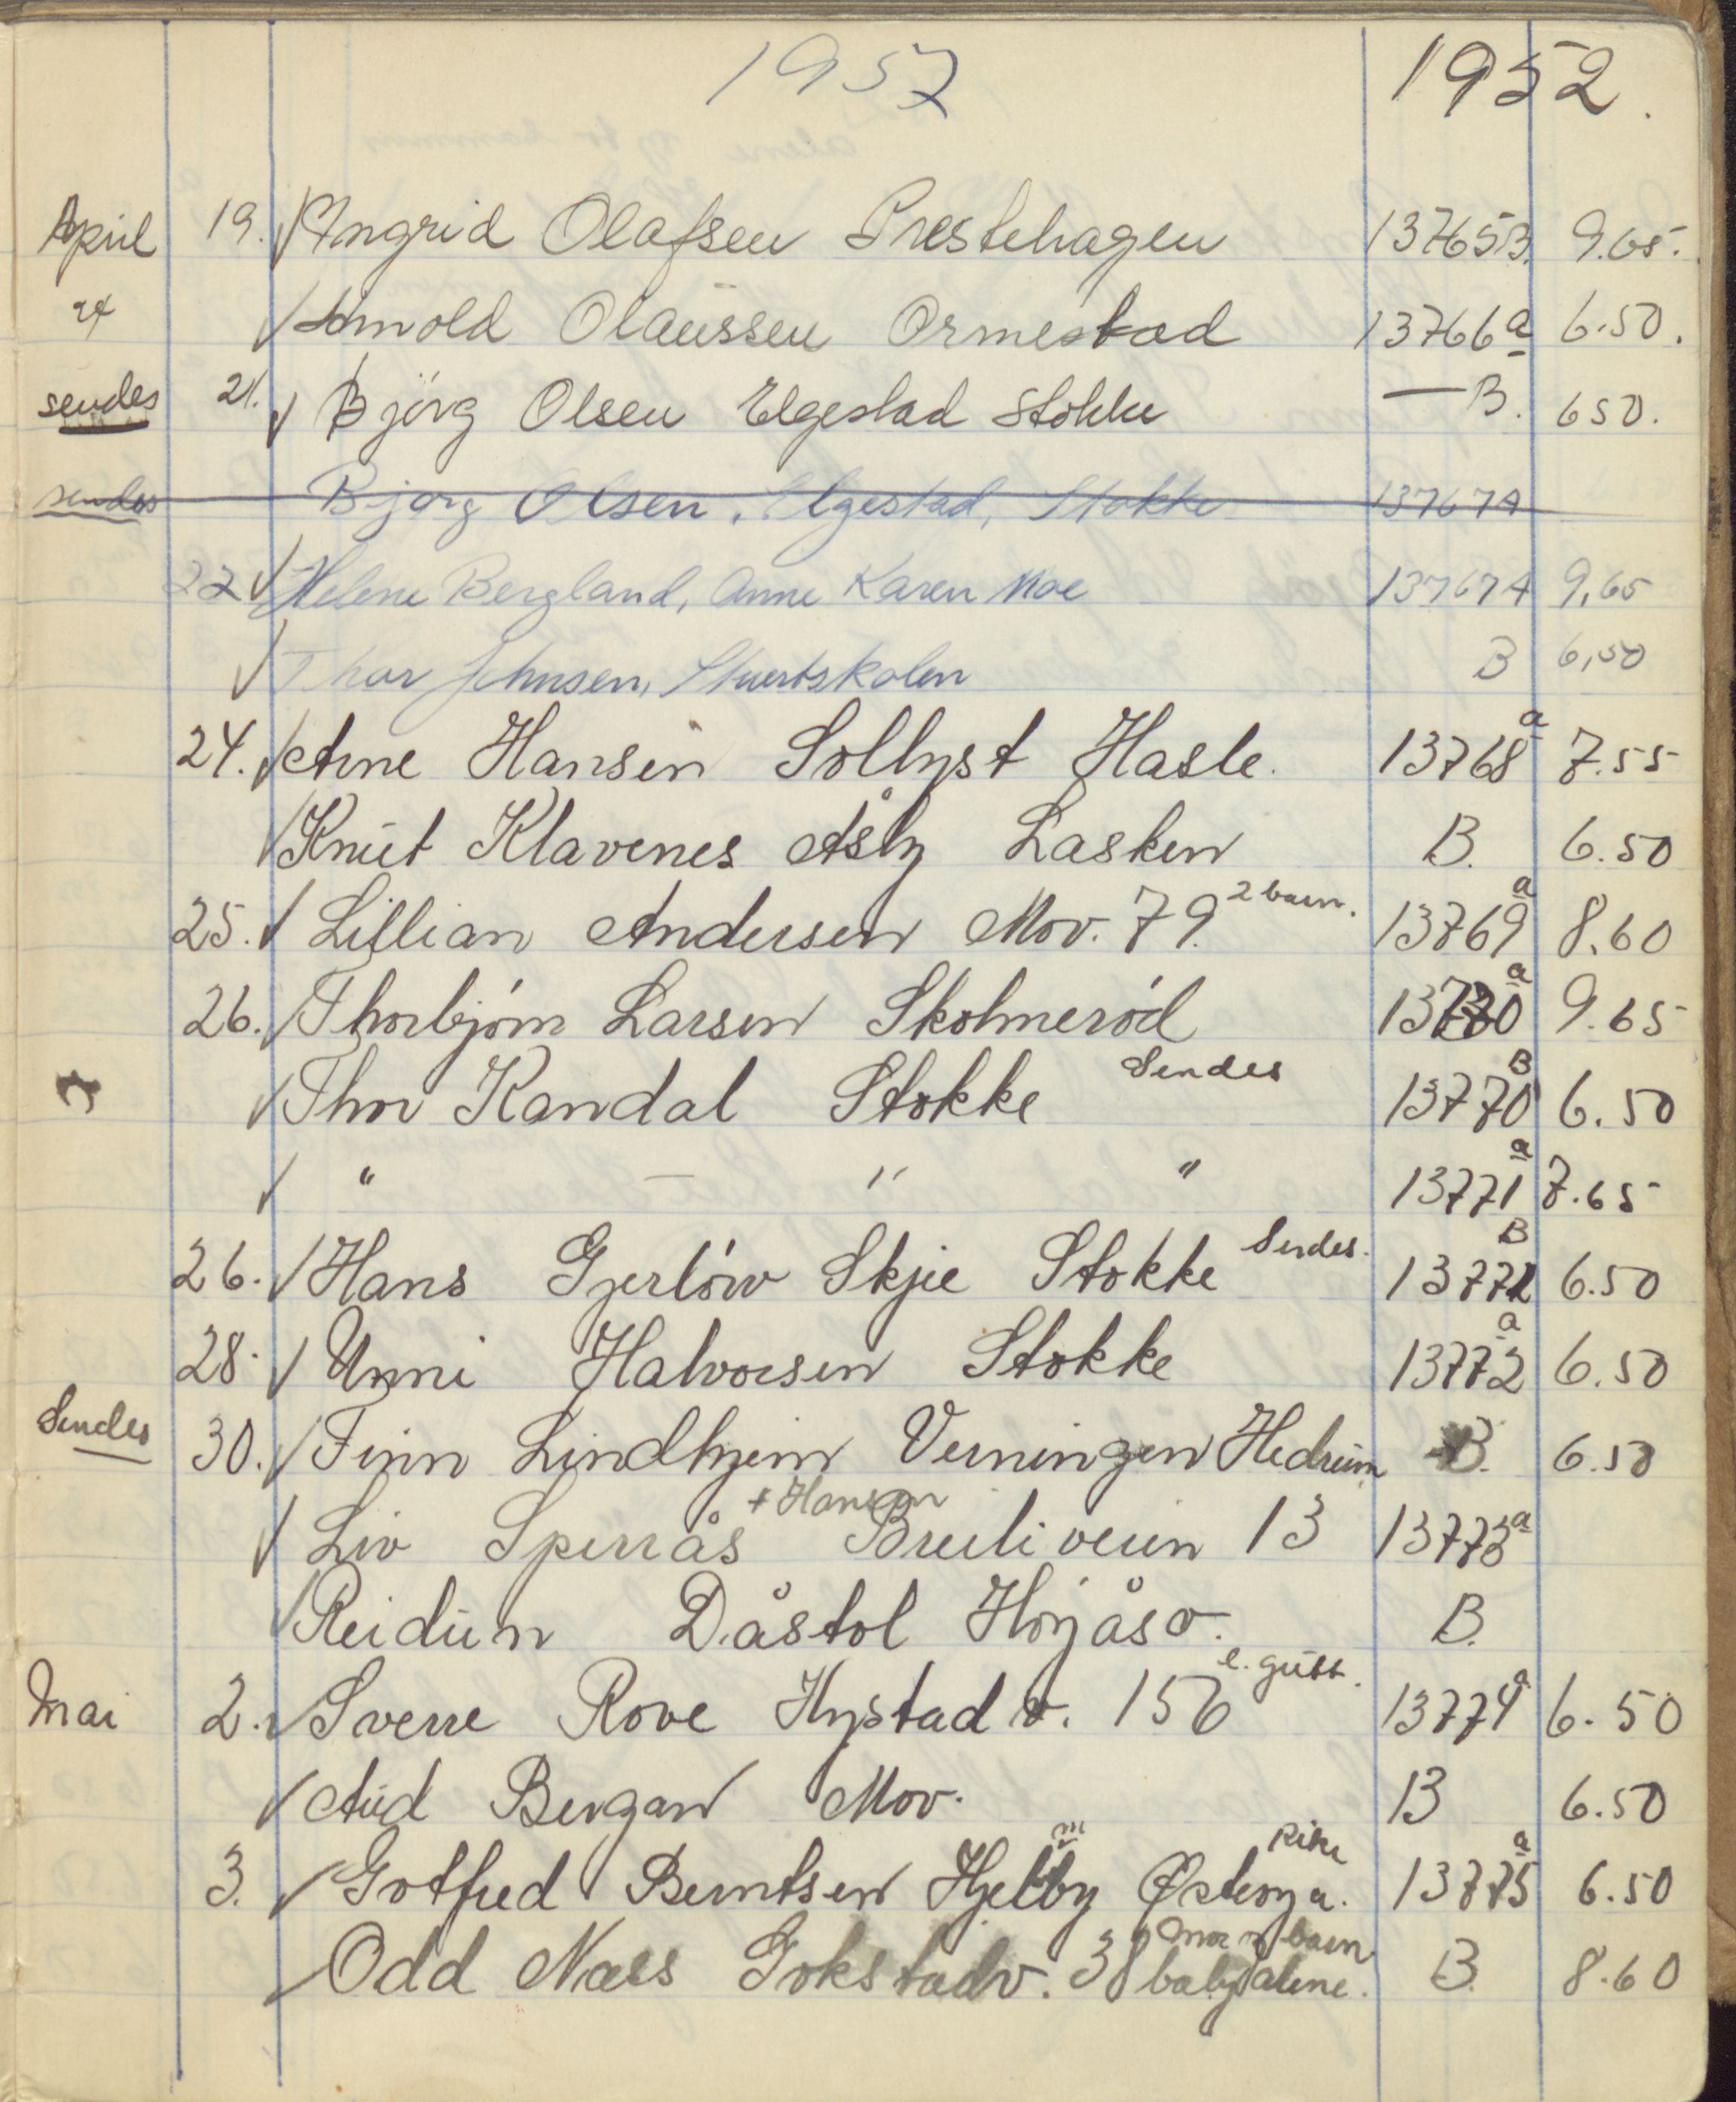 1952 1952.
April 19. √ Ingrid Olafsen Prestehagen 13765B. 9.65.
24 √ Arnold Olaüssen Ormestad 13766a 6.50.
sendes 21. √ Björg Olsen Elgestad Stokke — B. 650.
sendes Bjørg Olsen, Elgestad, Stokke 13767A
22 √ Helene Bergland, Anne Karen Moe 13767A 9,65
√ Thor Johnsen, Stuertskolen B 6,50
24. √ Arne Hansen Sollyst Hasle. 13768a 7.55
√ Knüt Klavenes Åsly Lasken B. 6.50
25. √ Lillian Andersen Mov. 79. 2 barn. 13769a 8.60
26. √ Thorbjórn Larsen Skolmeród 13770a 9.65
√ Thor Kandal Stokke Sendes 13770B 6.50
√ " — " " 13771a 7.65
26. √ Hans Gjerlów Skjee Stokke Sendes. 13771B 6.50
28. √ Unni Halvorsen Stokke 13772a 6.50
Sendes 30. √ Finn Lindhjem Verningen Hedrüm B. 6.50
√ Liv Sperrås + Hansen Breiliveien 13 13773a
√ Reidün Dåstøl Høyjåsv. B.
Mai 2. √ Sverre Rove Hystadv. 156 l. gütt. 13774a 6.50
√ Aüd Bergan Mov. B 6.50
3. √ Gotfred Berntsen Hjelmby Østerøya. 13775a 6.50
Odd Næss Gokstadv. 38 mor m barn baby alene. B. 8.60